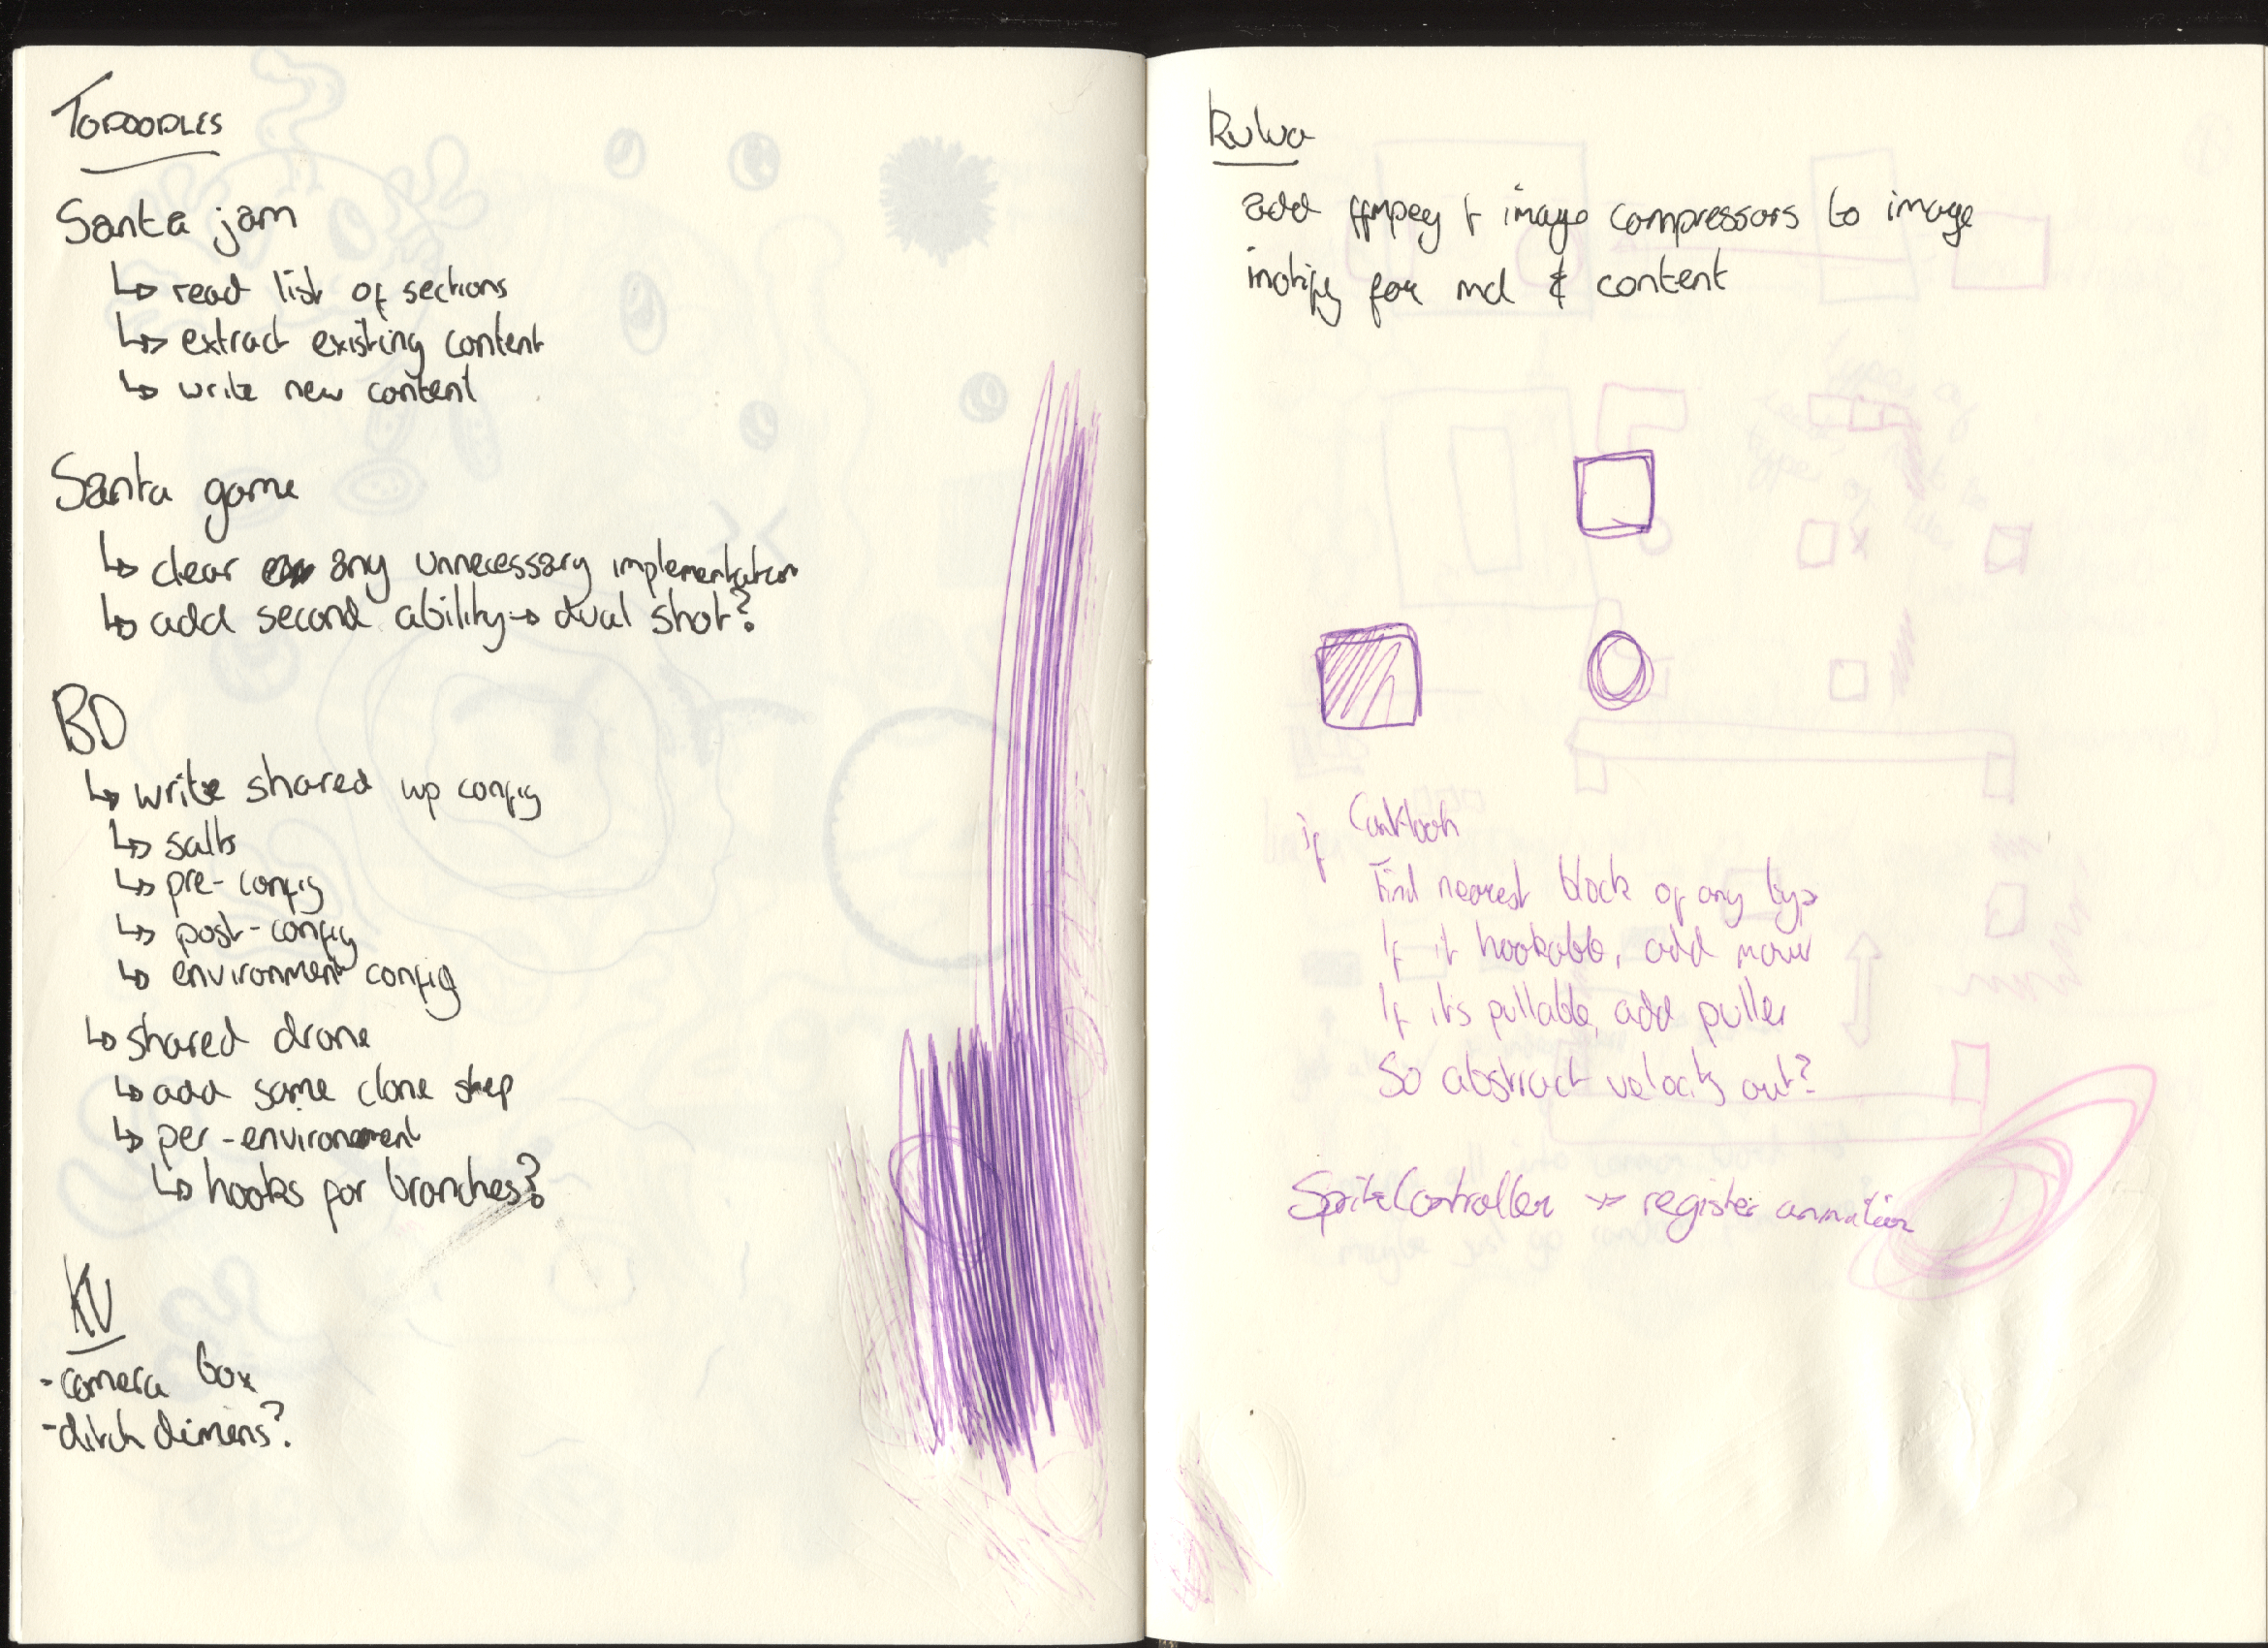 TODOODLES
Santa jam
↳ read list of sections
↳ extract existing content
↳ write new content
Santa game
↳ clear any unnecessary implementation
↳ add second ability → dual shot?
BD
↳ write shared wp config
↳ salts
↳ pre-config
↳ post-config
↳ environment config
↳ shared drone
↳ add same clone step
↳ per-environment
↳ hooks for branches?
KU
- camera box
- ditch dimens?
add ffmpeg & image compressors to image
inotify for md & content
if
Find nearest block of any type
If it hookable, add mover
If its pullable, add puller
So abstract velocity out?
SpriteController → register animation